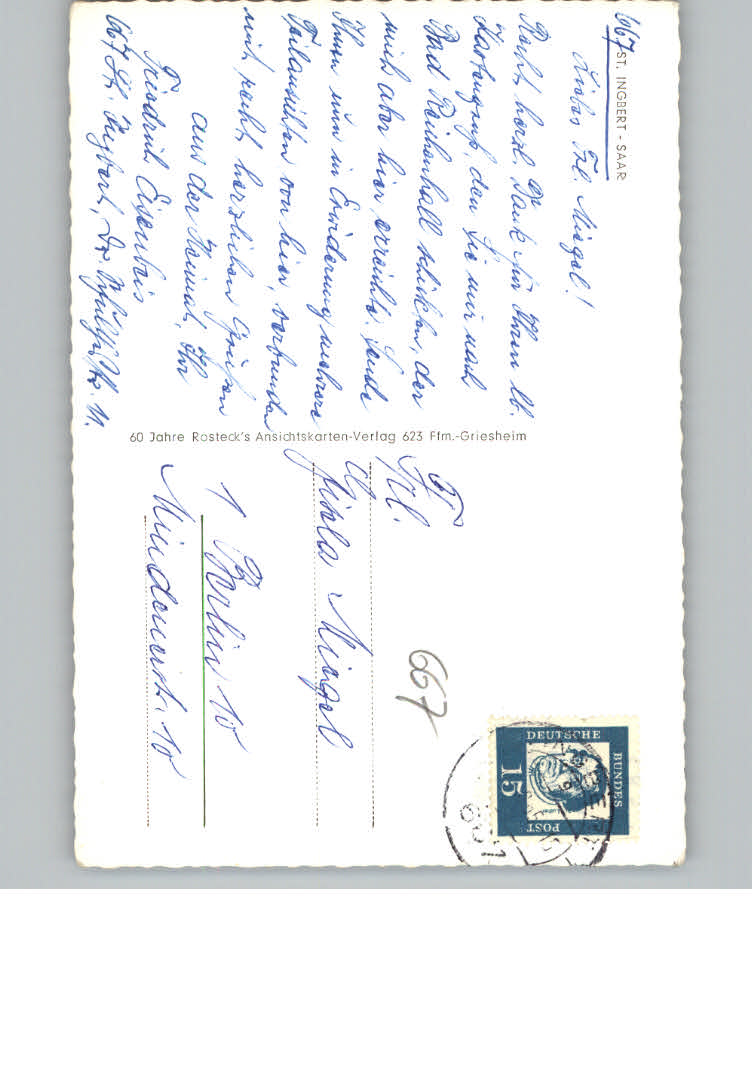 667 ST. INGBERT - SAAR
Liebes Frl. Miegel!
Recht herzl. Dank für Ihren lb.
Kartengruß, den Sie mir nach
Bad Reichenhall schickten, der
mich aber hier erreichte. Sende
Ihnen nun in Erinderung mehrere
Teilansichten von hier, verbunden
mit recht herzlichen Grüßen
aus der Heimat, Ihr
Friedrich Eisenbeis
667 St. Ingbert,
60 Jahre Rosteck's Ansichtskarten-Verlag 623 Ffm.-Griesheim
Frl.
Gisela Miegel
1 Berlin 10
Mindenerstr. 10
667
DEUTSCHE
BUNDES
POST
15